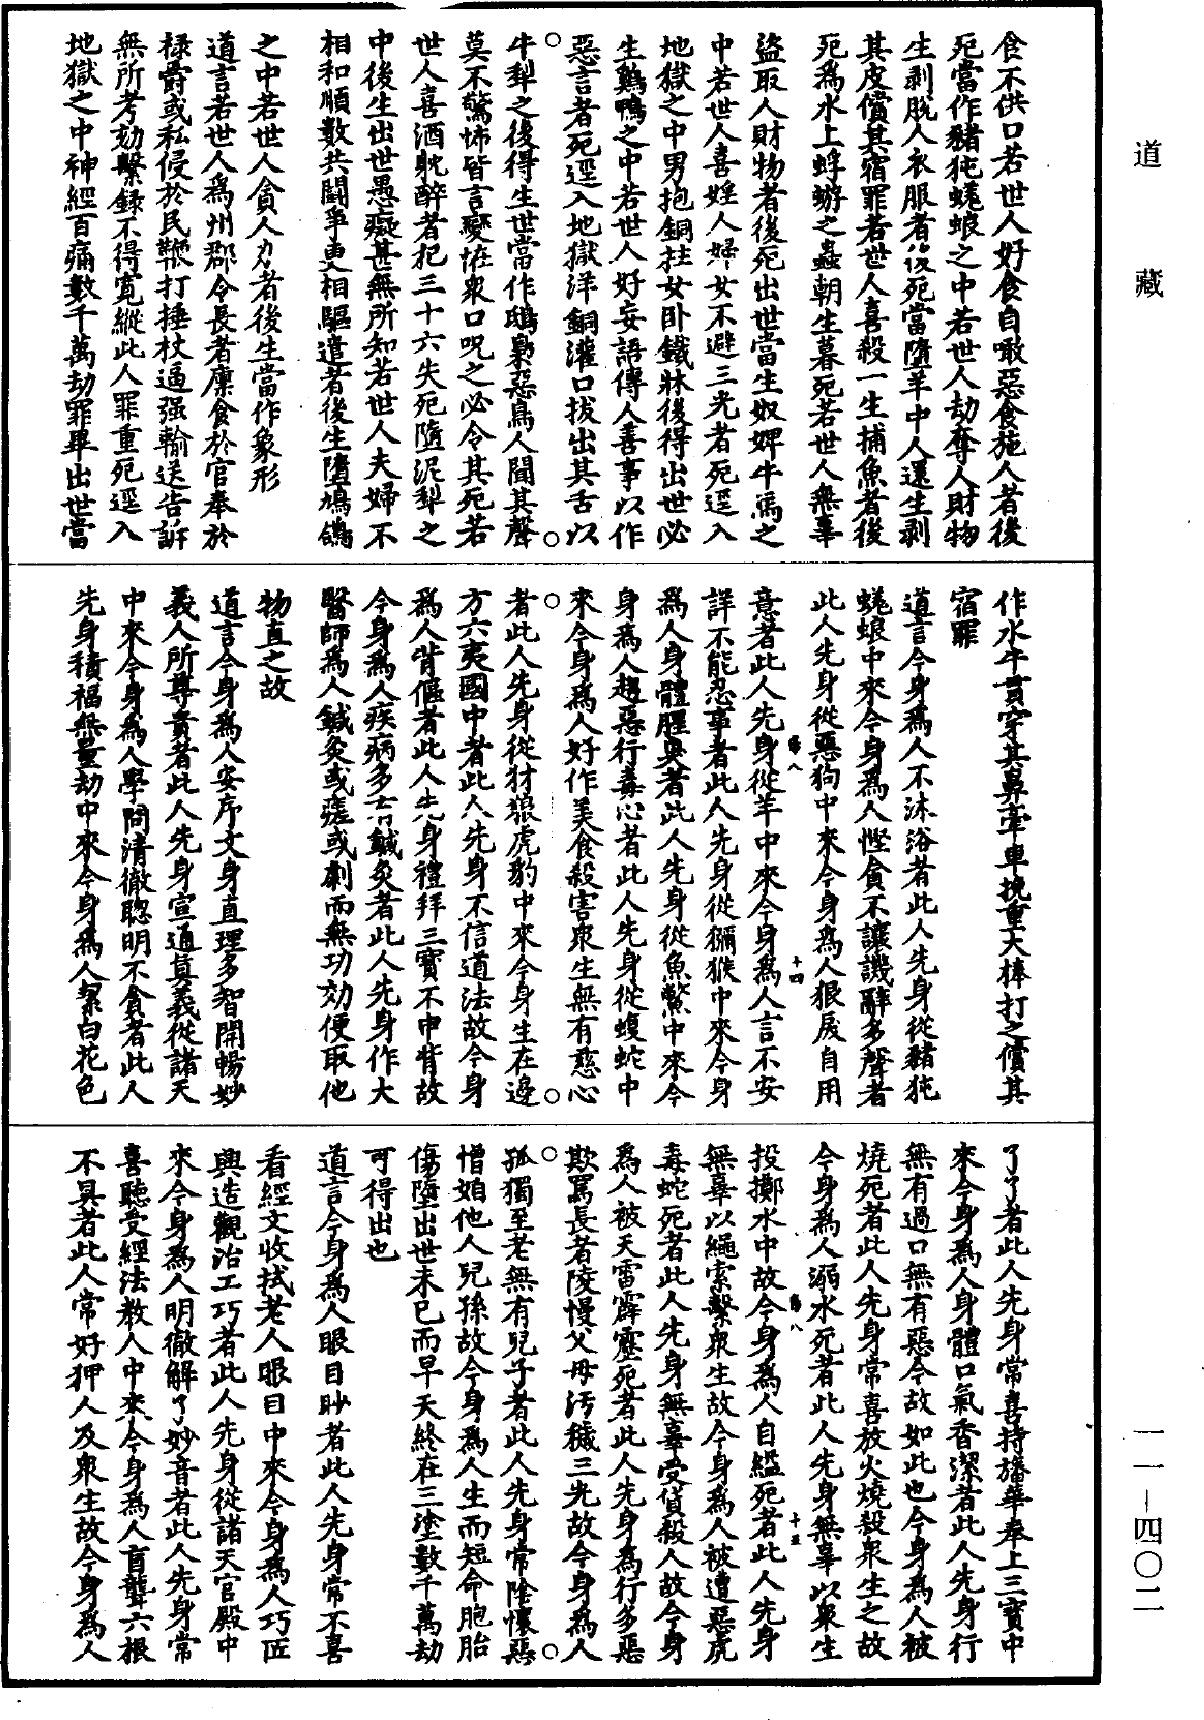 道藏
一一－四〇二
食不供口若世人好食自噉惡食施人者後
死當作豬㹠蜣蜋之中若世人劫奪人財物
生剥脫人衣服者後死當墮羊中人還生剥
其皮償其宿罪若世人喜殺一生捕魚者後
死爲水上蜉蝣之蟲朝生暮死若世人無事
盜取人財物者後死出世當生奴婢牛馬之
中若世人喜婬人婦女不避三光者死逕入
地獄之中男抱銅柱女卧鐵牀後得出世必
生鷄鴨之中若世人好妄語傳人善事以作
惡言者死逕入地獄洋銅灌口拔出其舌以
牛犁之後得生世當作鴟梟惡鳥人聞其聲
莫不驚怖皆言變恠衆口呪之必令其死若
世人喜酒躭醉者犯三十六失死墮泥犁之
中後生出世愚癡甚無所知若世人夫婦不
相和順數共鬪爭更相驅遣者後生墮鳩鴿
之中若世人貪人力者後生當作象形
道言若世人爲州郡令長者廩食於官奉於
祿爵或私侵於民鞭打捶杖逼强輸送告訴
無所考劾繫錄不得寬縱此人罪重死逕入
地獄之中神經百痛數千萬劫罪畢出世當
作水牛貫穿其鼻牽車挽重大棒打之償其
宿罪
道言今身爲人不沐浴者此人先身從豬㹠
蜣蜋中來今身爲人慳貪不讓譏辭多聲者
此人先身從惡狗中來今身爲人狠戾自用
意者此人先身從羊中來今身爲人言不安
詳不能忍事者此人先身從獼猴中來今身
爲人身體腥臭者此人先身從魚鱉中來今
身爲人趨惡行毒心者此人先身從蝮蛇中
來今身爲人好作美食殺害衆生無有慈心
者此人先身從犲狼虎豹中來今身生在邊
方六夷國中者此人先身不信道法故今身
爲人背傴者此人先身禮拜三寶不申背故
今身爲人疾病多有鍼灸者此人先身作大
醫師爲人鍼灸或瘥或劇而無功効便取他
物直之故
道言今身爲人安序文身直理多智開暢妙
義人所尊貴者此人先身宣通真義從諸天
中來今身爲人學問清徹聰明不貪者此人
先身積福無量劫中來今身爲人絜白花色
了了者此人先身常喜持旛華奉上三寶中
來今身爲人身體口氣香潔者此人先身行
無有過口無有惡今故如此也今身爲人被
燒死者此人先身常喜放火燒殺衆生之故
今身爲人溺水死者此人先身無辜以衆生
投擲水中故今身爲人自縊死者此人先身
無辜以繩索繫衆生故今身爲人被遭惡虎
毒蛇死者此人先身無辜受貨殺人故今身
爲人被天雷霹靂死者此人先身爲行多惡
欺罵長者陵慢父母汚穢三光故今身爲人
孤獨至老無有兒子者此人先身常陰懷惡
憎妲他人兒孫故今身爲人生而短命胞胎
傷墮出世未已而早夭終在三塗數千萬劫
可得出也
道言今身爲人眼目眇者此人先身常不喜
看經文收拭老人眼目中來今身爲人巧匠
興造觀治工巧者此人先身從諸天官殿中
來今身爲人明徹解了妙音者此人先身常
喜聽受經法教人中來今身爲人盲聾六根
不具者此人常好狎人及衆生故今身爲人